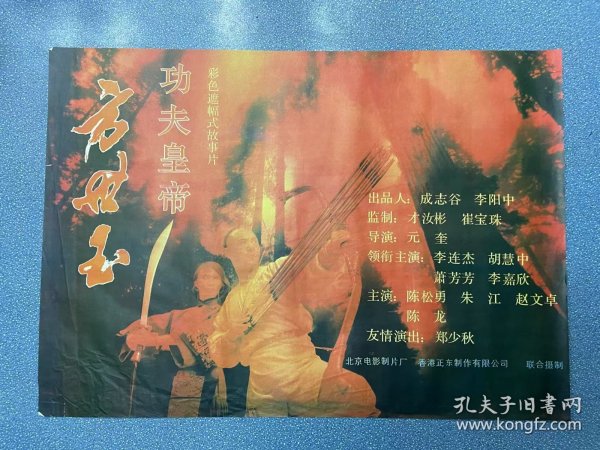 方世玉
功夫皇帝
彩色遮幅式故事片
出品人：成志谷 李阳中
监制：才汝彬 崔宝珠
导演：元 奎
领衔主演：李连杰 胡慧中
萧芳芳 李嘉欣
主演：陈松勇 朱 江 赵文卓
陈 龙
友情演出：郑少秋
北京电影制片厂 香港正东制作有限公司 联合摄制
孔夫子旧书网
www.kongfz.com